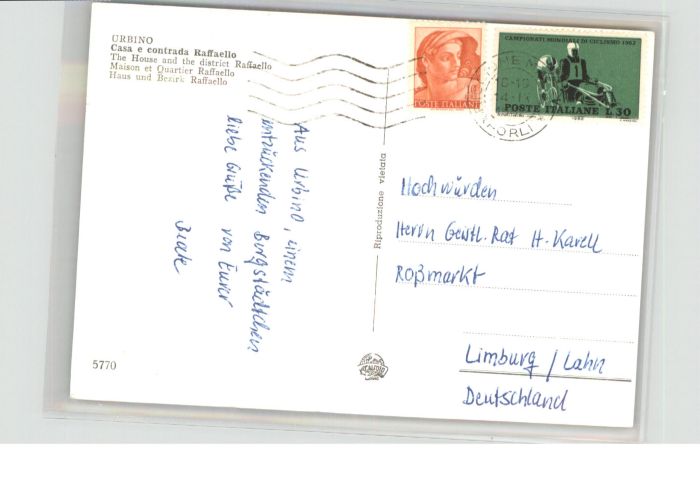 URBINO
Casa e contrada Raffaello
The House and the district Raffaello
Maison et Quartier Raffaello
Haus und Bezirk Raffaello
POSTE ITALIANE
CAMPIONATI MONDIALI DI CICLISMO 1962
POSTE ITALIANE L.30
1962
FORLI
Aus Urbino, einem
entzückenden Bergstädtchen
liebe Grüße von Eurer
Beate
Riproduzione vietata
Hochwürden
Herrn Geistl. Rat H. Karell
Roßmarkt
Limburg / Lahn
Deutschland
5770